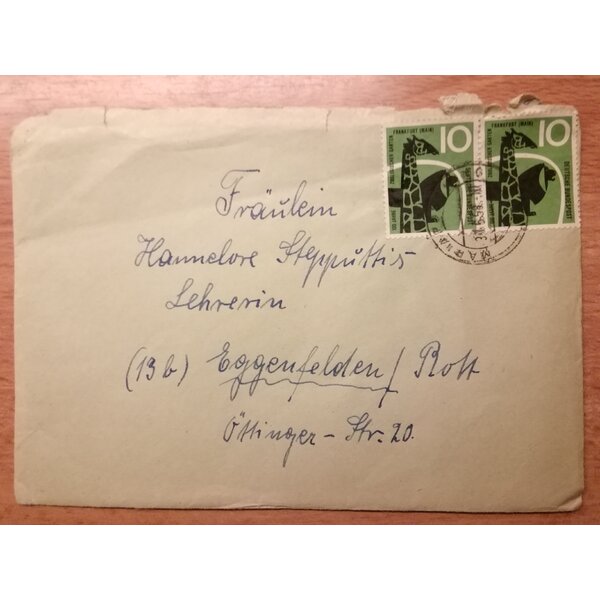 Fräulein
Hannelore Stepputtis
Lehrerin
(13b) Eggenfelden/Rott
Öttinger-Str. 20.
10
ZOOLOGISCHER GARTEN FRANKFURT (MAIN)
10
ZOOLOGISCHER GARTEN FRANKFURT (MAIN)
DEUTSCHE BUNDESPOST